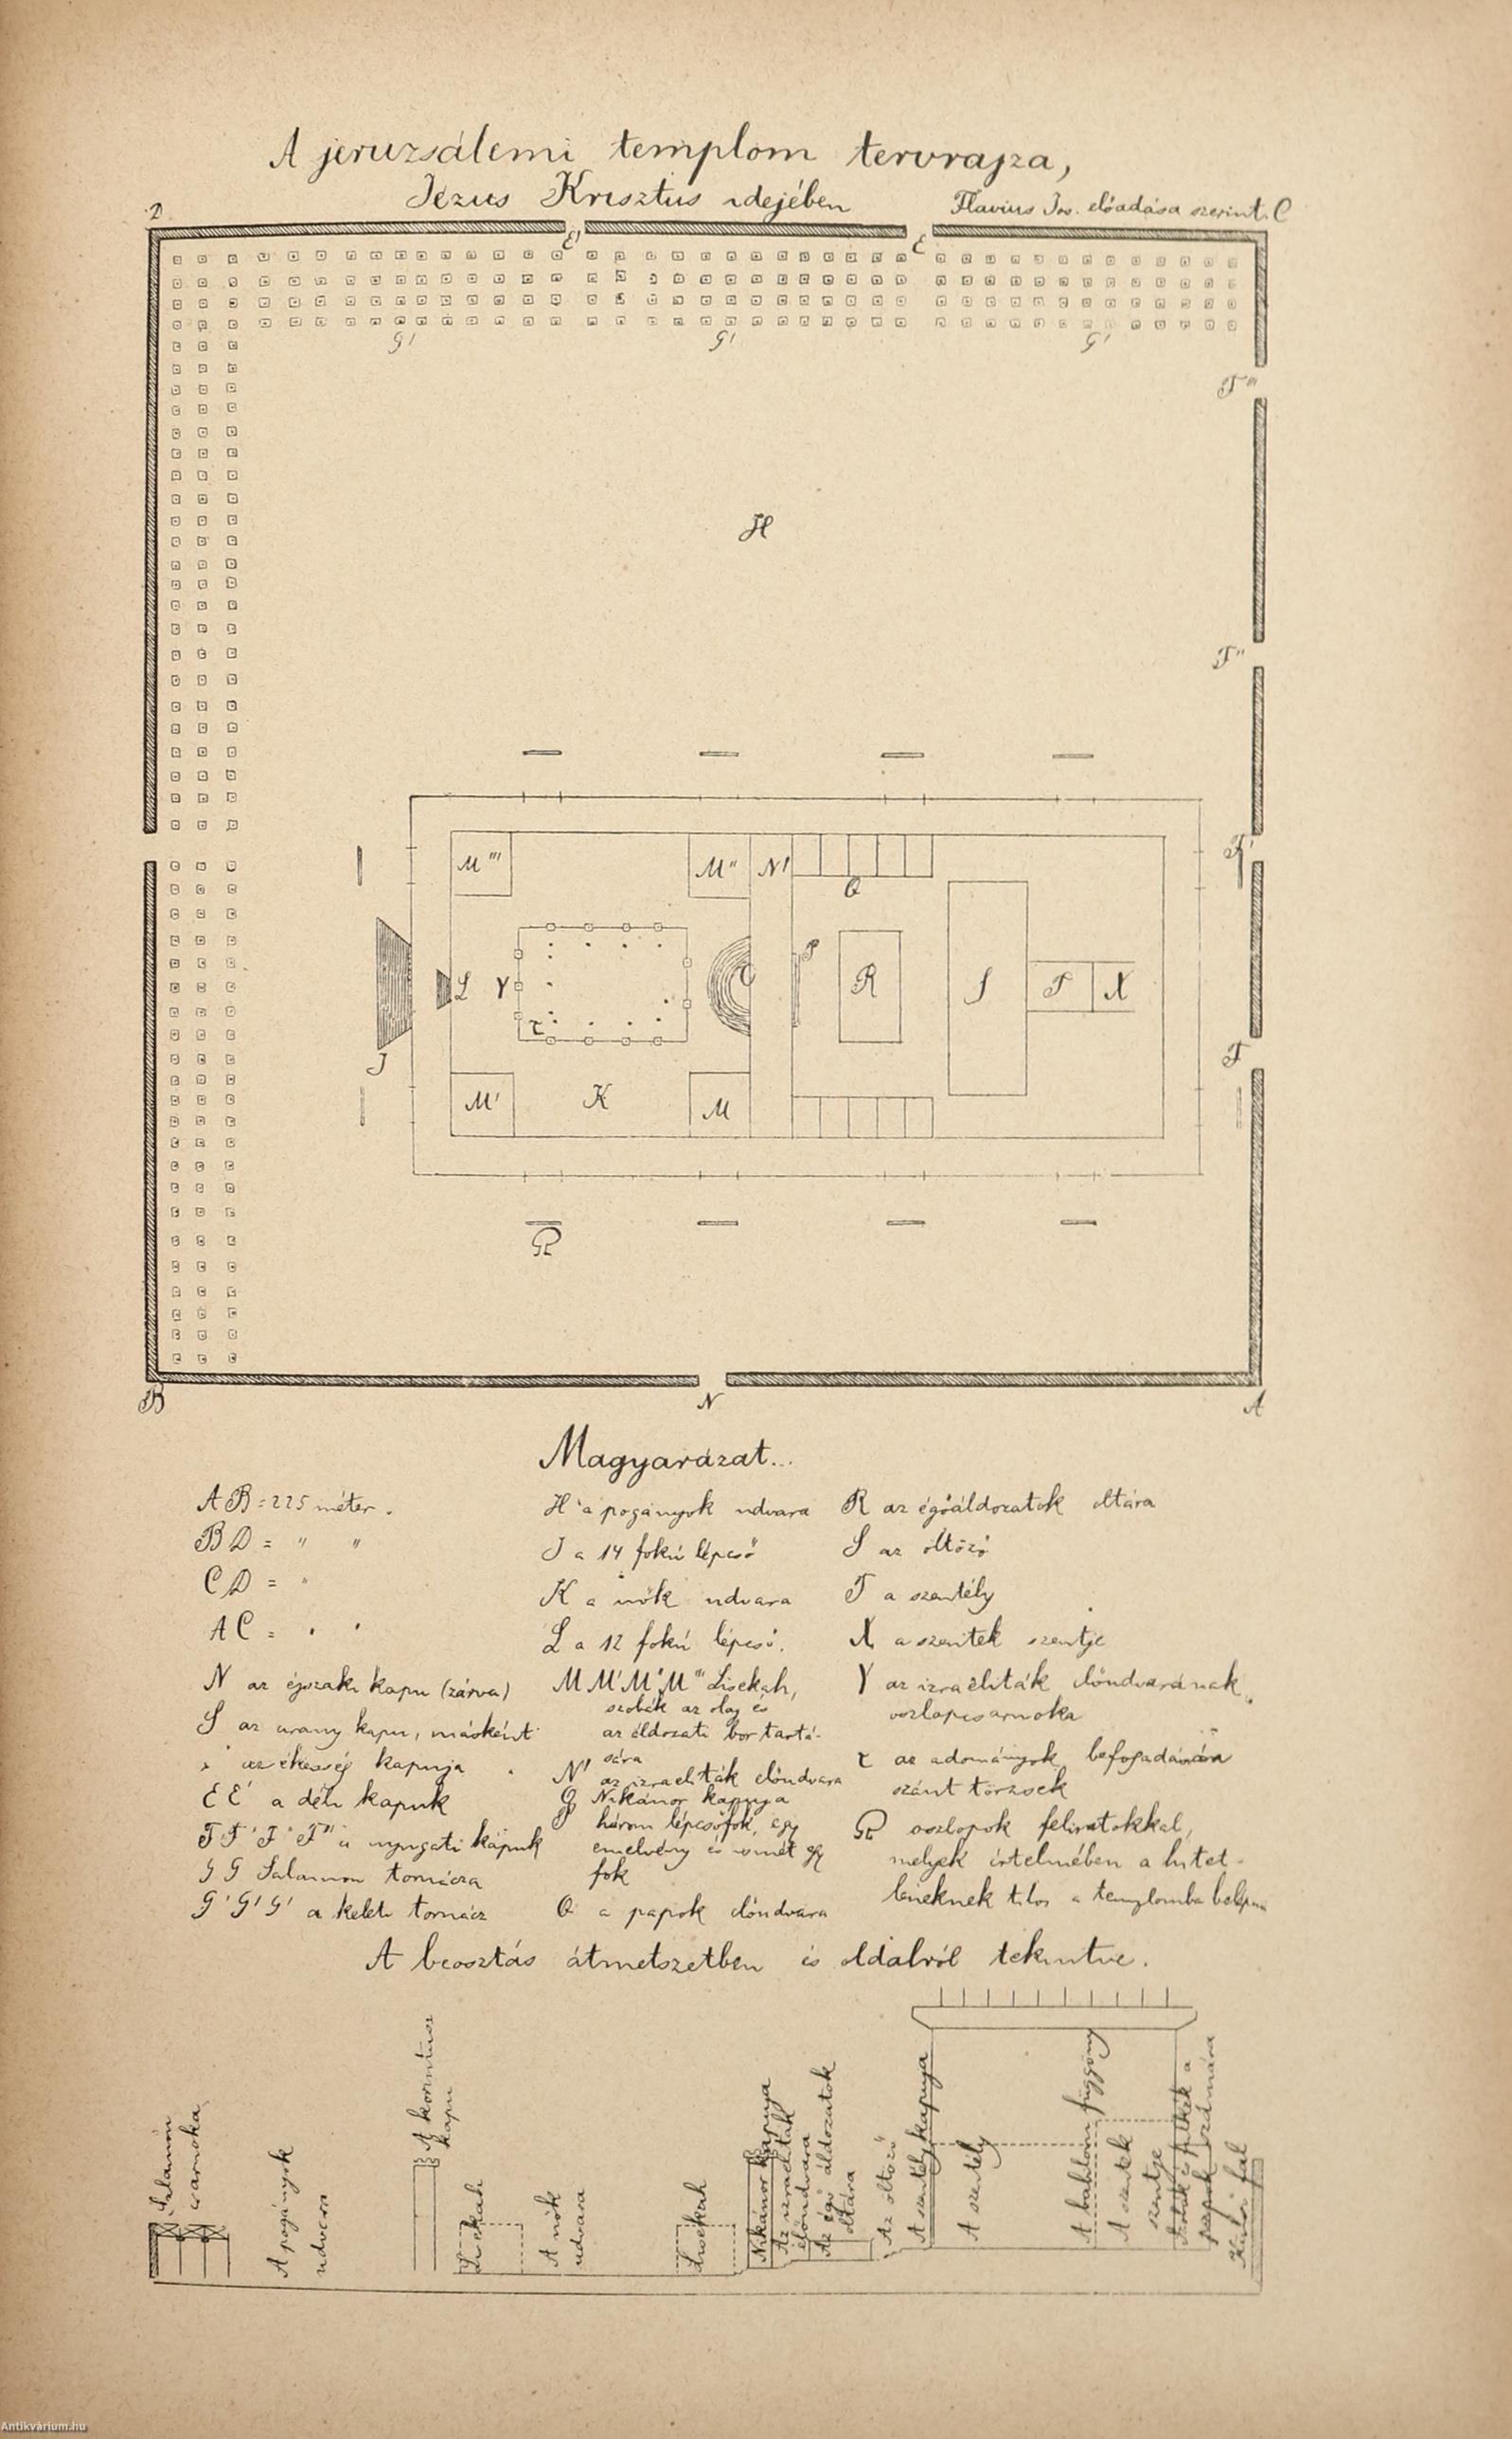 A jeruzsálemi templom tervrajza,
Jézus Krisztus idejében
Flavius Jos. előadása szerint.
D
C
E'
E
G'
G'
G'
F'''
H
F''
F'
M'''
M''
N'
Q
P
L
Y
R
S
T
X
τ
J
F
M'
K
M
B
N
A
Magyarázat...
AB = 225 méter.
BD = " "
CD = "
AC = " "
N az északi kapu (zárva)
S az arany kapu, másként
az ékesség kapuja
E E' a déli kapuk
F F' F'' F''' a nyugati kapuk
G G Salamon tornácza
G' G' G' a keleti tornácz
H a pogányok udvara
J a 14 fokú lépcső
K a nők udvara
L a 12 fokú lépcső.
M M' M'' M''' Lisekah,
szobák az olaj és
az áldozati bor tartá-
sára
N' az izraeliták előudvara
Nikánor kapuja
három lépcsőfok, egy
emelvény és ismét egy
fok
Q a papok előudvara
R az égőáldozatok oltára
S az öltöző
T a szentély
X a szentek szentje
Y az izraeliták előudvarának
oszlopcsarnoka
τ az adományok befogadására
szánt törzsek
oszlopok feliratokkal,
melyek értelmében a hitet-
leneknek tilos a templomba belépni
A beosztás átmetszetben és oldalról tekintve.
Salamon
csarnoka
A pogányok
udvara
A korintusi
kapu
Lisekah
A nők
udvara
Lisekah
Nikánor kapuja
Az izraeliták
előudvara
Az égő áldozatok
oltára
Az öltöző
A szentély kapuja
A szentély
A babiloni függöny
A szentek
szentje
papok számára
Külső fal
Antikvárium.hu